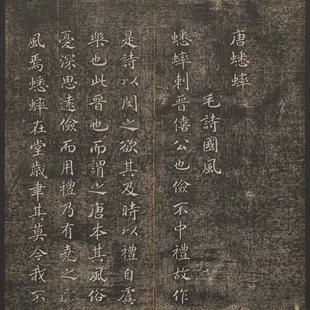 唐蟋蟀
毛詩國風
蟋蟀刺晉僖公也儉不中禮故作
是詩以閔之欲其及時以禮自虞
樂也此晉也而謂之唐本其風俗
憂深思逺儉而用禮乃有堯之
風焉蟋蟀在堂歲聿其莫今我不